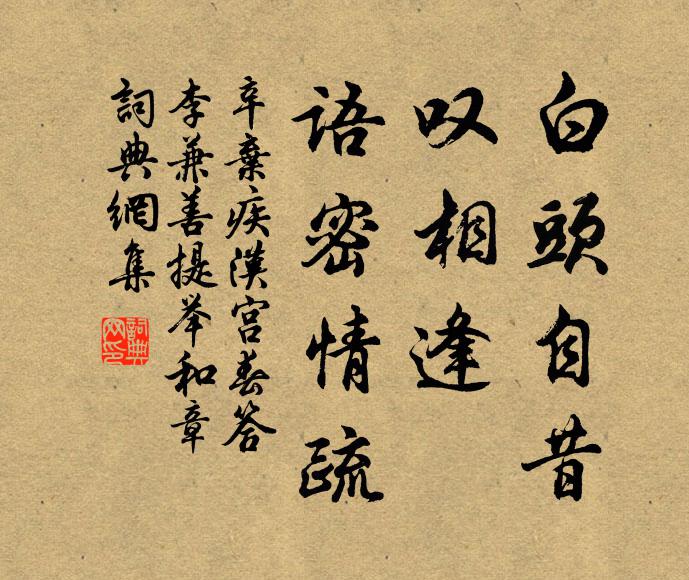 白頭自昔
叹相逢
語密情疏
辛棄疾漢宮春答
李兼善提举和章
詞典網集
詞典網印